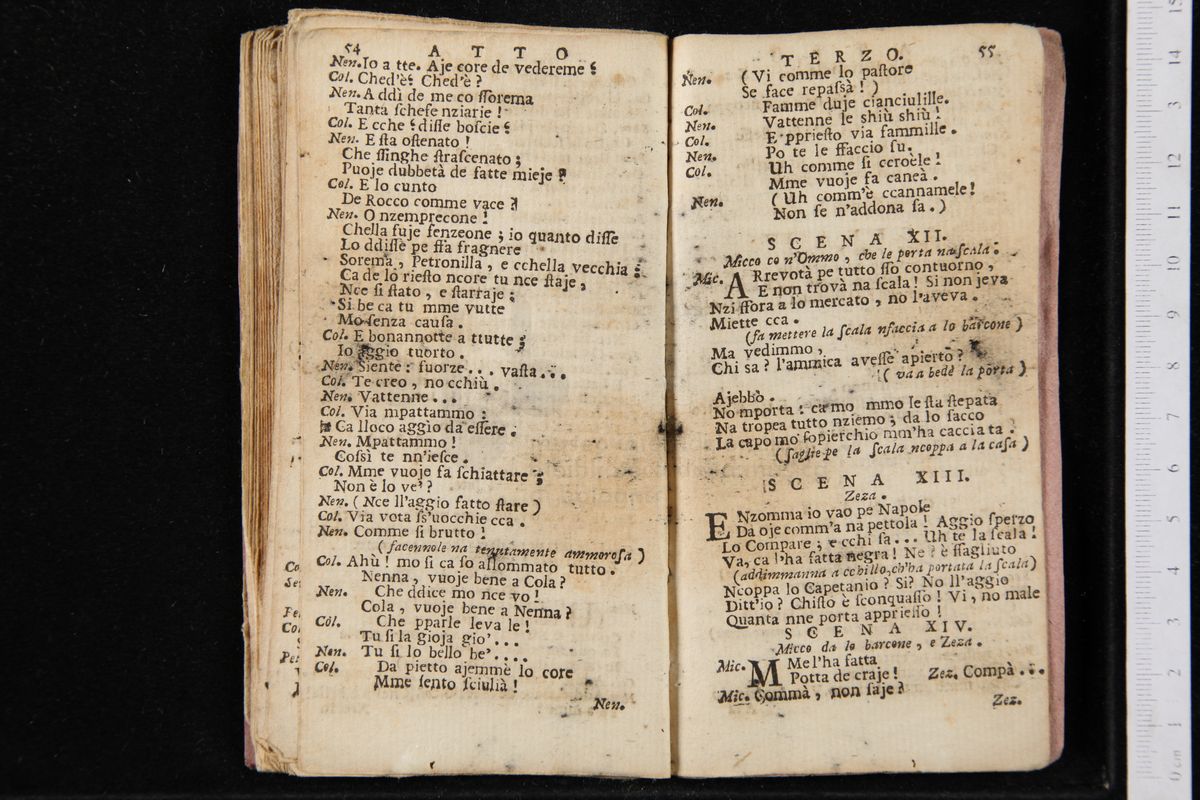 54 ATTO
Nen. Io a tte. Aje core de vedereme?
Col. Ched'è? Ched'è?
Nen. A ddì de me co ſſorema
Tanta ſchefe nziarie!
Col. E cche? diſſe boſcie?
Nen. E ſta oſtenato!
Che ſſinghe ſtraſcenato;
Puoje dubbetà de fatte mieje?
Col. E lo cunto
De Rocco comme vace?
Nen. O nzemprecone!
Chella fuje fenzeone; io quanto diſſe
Lo ddiſſe pe ffa fragnere
Sorema, Petronilla, e cchella vecchia:
Ca de lo rieſto ncore tu nce ſtaje,
Nce ſi ſtato, e ſtarraje;
Si be ca tu mme vutte
Mo ſenza cauſa.
Col. E bonannotte a ttutte;
Io aggio tuorto.
Nen. Siente: fuorze... vaſta...
Col. Te creo, no cchiù.
Nen. Vattenne...
Col. Via mpattammo:
Ca lloco aggio da eſſere.
Nen. Mpattammo!
Coſsì te nn'ieſce.
Col. Mme vuoje fa ſchiattare;
Non è lo ve'?
Nen. (Nce ll'aggio fatto ſtare)
Col. Via vota ſs'uocchie cca.
Nen. Comme ſi brutto!
(facennole na tenutamente ammoroſa)
Col. Ahù! mo ſi ca ſo aſſommato tutto.
Nenna, vuoje bene a Cola?
Nen. Che ddice mo nce vo!
Cola, vuoje bene a Nenna?
Col. Che pparle leva le!
Tu ſi la gioja gio'...
Nen. Tu ſi lo bello be'....
Col. Da pietto ajemmè lo core
Mme ſento ſciulià!
Nen.
TERZO. 55
Nen. (Vi comme lo paſtore
Se face repaſſà!)
Col. Famme duje cianciulille.
Nen. Vattenne le shiù shiù!
Col. E pprieſto via fammille.
Nen. Po te le ffaccio ſu.
Col. Uh comme ſi ccroele!
Mme vuoje fa caneà.
Nen. (Uh comm'è ccannamele!
Non ſe n'addona ſa.)
SCENA XII.
Micco co n'Ommo, che le porta na ſcala.
Mic. ARrevotà pe tutto ſſo contuorno,
E non trovà na ſcala! Si non jeva
Nzi ffora a lo mercato, no l'aveva.
Miette cca.
(fa mettere la ſcala nfaccia a lo barcone)
Ma vedimmo,
Chi sa? l'ammica aveſſe apierto?
(va a bedè la porta)
Ajebbò.
No mporta: ca mo mmo le ſta ſtepata
Na tropea tutto nziemo; da lo ſacco
La capo mo ſopierchio mm'ha cacciata.
(ſaglie pe la ſcala ncoppa a la caſa)
SCENA XIII.
Zeza.
ENzomma io vao pe Napole
Da oje comm'a na pettola! Aggio ſperzo
Lo Compare; e cchi ſa... Uh te la ſcala!
Va, ca l'ha fatta negra! Ne? è ſſagliuto
(addimmanna a cchillo, ch'ha portata la ſcala)
Ncoppa lo Capetanio? Si? No ll'aggio
Ditt'io? Chiſto è ſconquaſſo! Vi, no male
Quanta nne porta apprieſſo!
SCENA XIV.
Micco da lo barcone, e Zeza.
Mic. MMe l'ha fatta
Potta de craje! Zez. Compà...
Mic. Commà, non ſaje?
Zez.